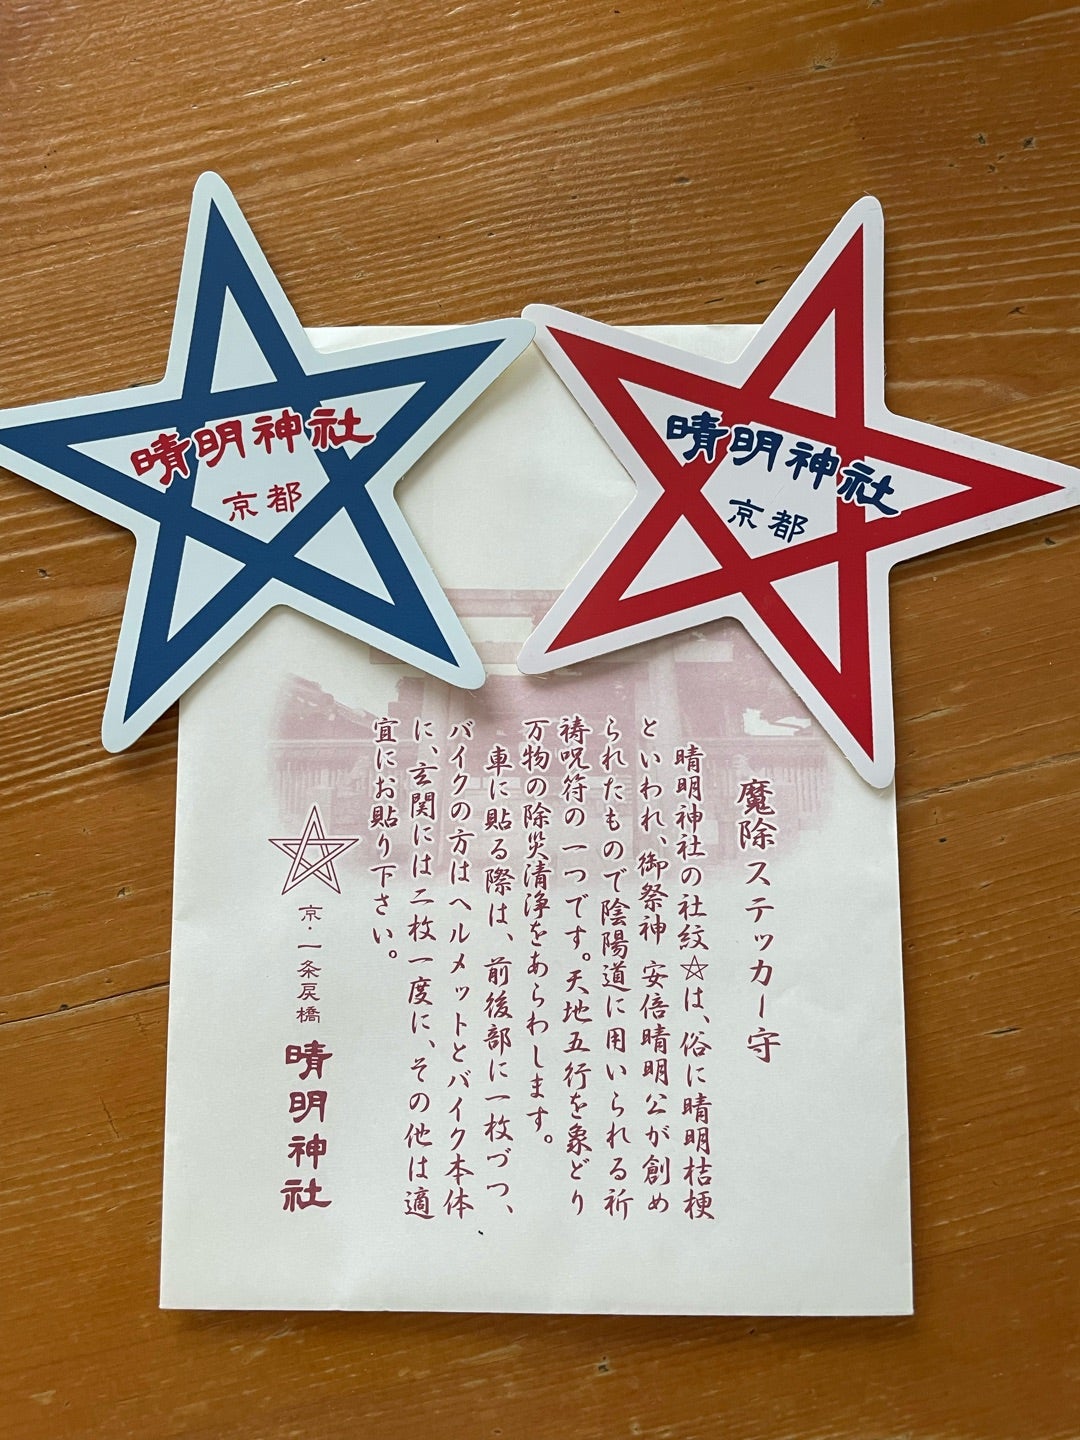 晴明神社
京都
晴明神社
京都
魔除ステッカー守
晴明神社の社紋☆は、俗に晴明桔梗
といわれ、御祭神 安倍晴明公が創め
られたもので陰陽道に用いられる祈
祷呪符の一つです。天地五行を象どり
万物の除災清浄をあらわします。
車に貼る際は、前後部に一枚づつ、
バイクの方はヘルメットとバイク本体
に、玄関には二枚一度に、その他は適
宜にお貼り下さい。
京・一条戻橋
晴明神社